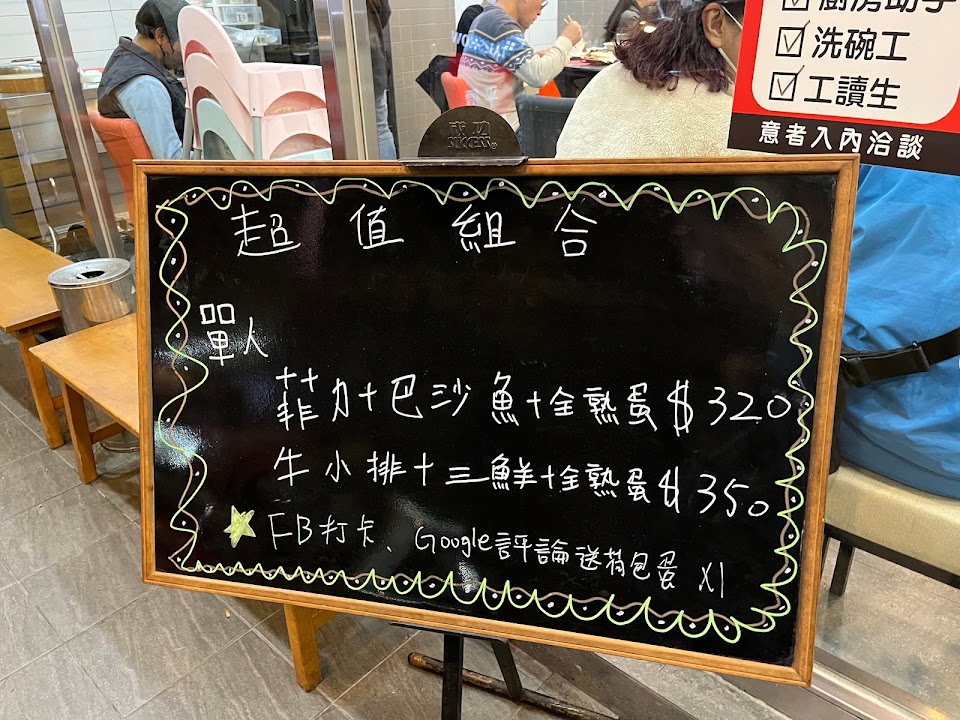 廚房助手
洗碗工
工讀生
意者入內洽談
成功
SUCCESS®
超值組合
單人
菲力+巴沙魚+全熟蛋$320
牛小排+三鮮+全熟蛋$350
FB打卡、Google評論送荷包蛋 X1